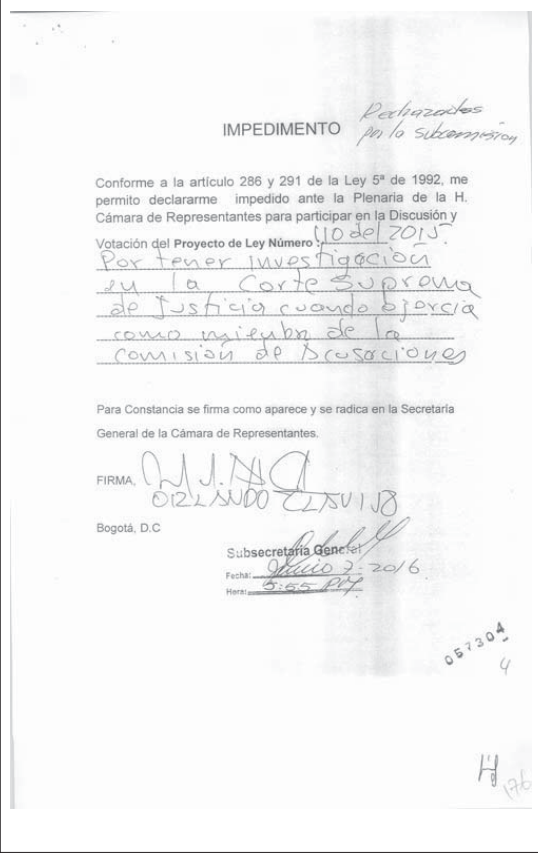 Rechazados
por la subcomisión
IMPEDIMENTO
Conforme a la artículo 286 y 291 de la Ley 5ª de 1992, me
permito declararme impedido ante la Plenaria de la H.
Cámara de Representantes para participar en la Discusión y
Votación del Proyecto de Ley Número : 110 del 2015.
Por tener investigación
en la Corte Suprema
de Justicia cuando ejercia
como miembro de la
Comisión de Acusaciones
Para Constancia se firma como aparece y se radica en la Secretaría
General de la Cámara de Representantes.
FIRMA,
ORLANDO CLAVIJO
Bogotá, D.C
Subsecretaría General
Fecha: Junio 7-2016
Hora: 5:55 PM
057304
4
176